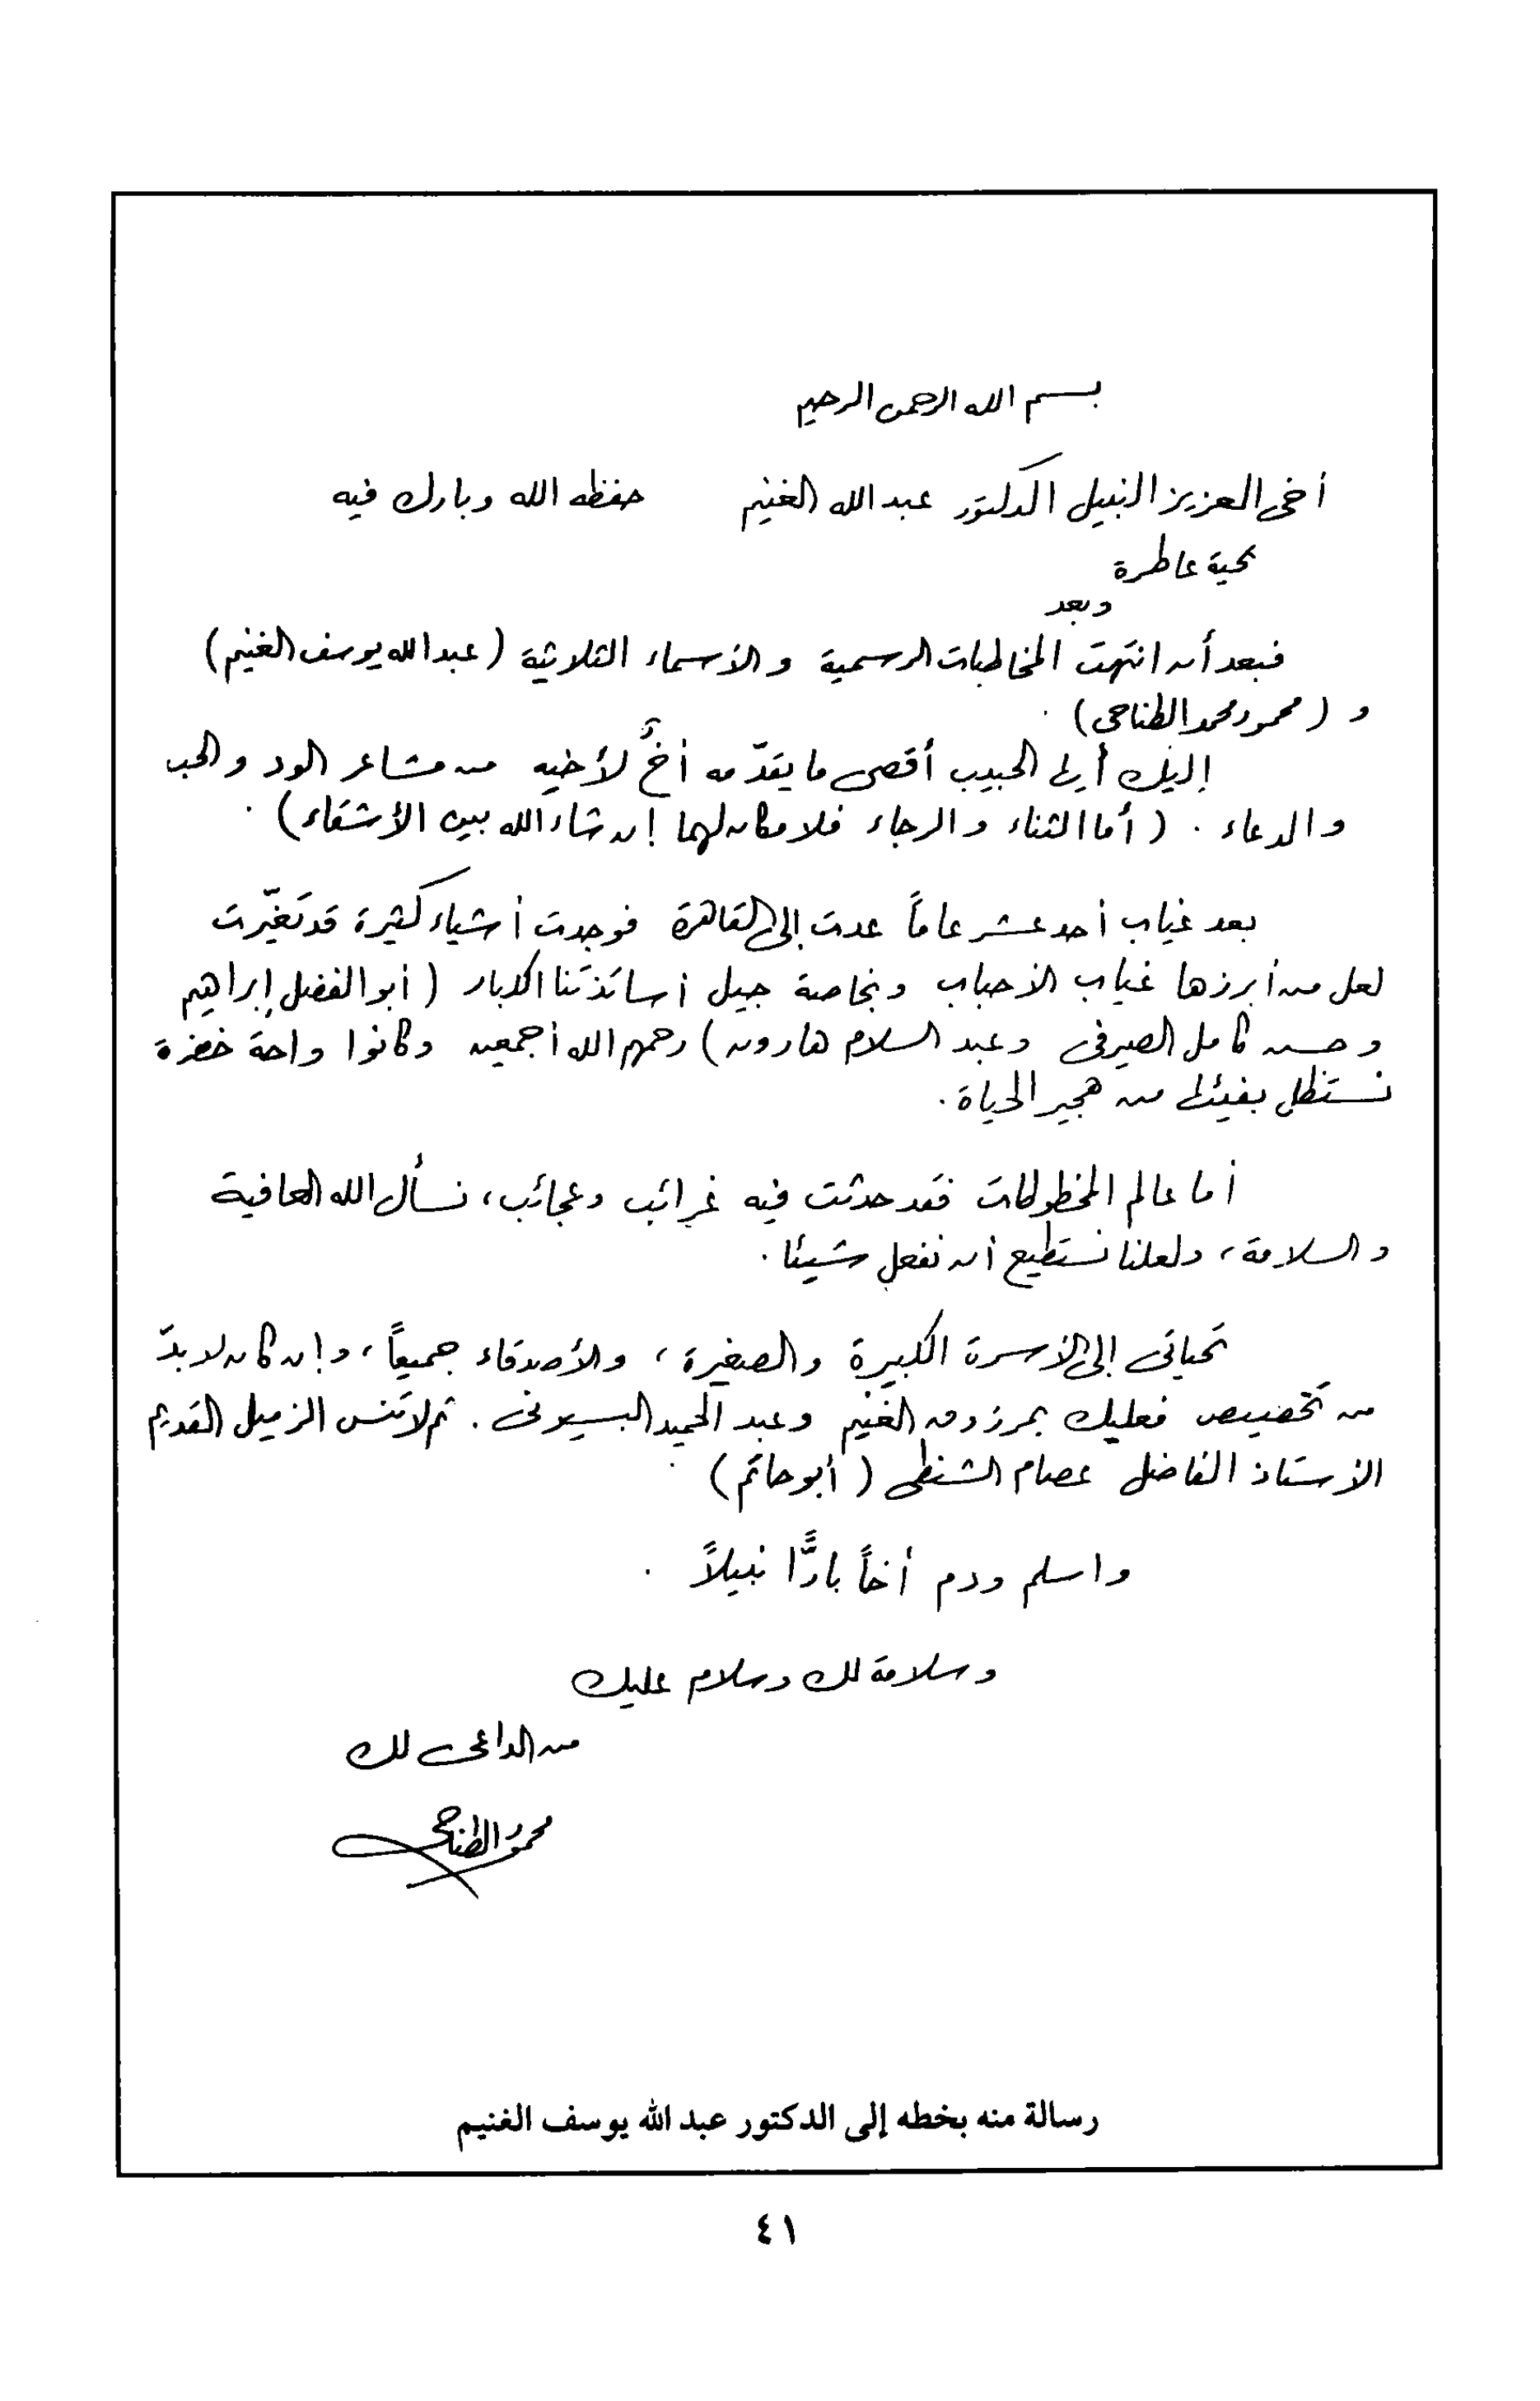 بسم الله الرحمن الرحيم
أخي العزيز النبيل الدكتور عبد الله الغنيم حفظه الله وبارك فيه
تحية عاطرة
وبعد
فبعد أن انتهت المخاطبات الرسمية والأسماء الثلاثية (عبد الله يوسف الغنيم)
و (محمود محمد الطناحى) .
إليك أيها الحبيب أقصى ما يقدّمه أخٌ لأخيه من مشاعر الود والحب
والدعاء . (أما الثناء والرجاء فلا مكان لهما إن شاء الله بين الأشقاء) .
بعد غياب أحد عشر عاماً عدت إلى القاهرة فوجدت أشياء كثيرة قد تغيّرت
لعل من أبرزها غياب الأحباب وبخاصة جيل أساتذتنا الكبار (أبو الفضل إبراهيم
وحسن كامل الصيرفى وعبد السلام هارون) رحمهم الله أجمعين وكانوا واحة خضرة
نستظل بفيئها من هجير الحياة .
أما عالم المخطوطات فقد حدثت فيه غرائب وعجائب، نسأل الله العافية
والسلامة، ولعلنا نستطيع أن نفعل شيئا .
تحياتى إلى الأسرة الكبيرة والصغيرة، والأصدقاء جميعاً، وإن كان لا بدّ
من تخصيص فعليك بمرزوق الغنيم وعبد الحميد البسيونى . ثم لا تنس الزميل القديم
الأستاذ الفاضل عصام الشنطى (أبو حاتم) .
واسلم ودم أخاً بارًّا نبيلاً .
وسلامة لك وسلام عليك
من الداعى لك
محمود الطناحى
رسالة منه بخطه إلى الدكتور عبد الله يوسف الغنيم
٤١